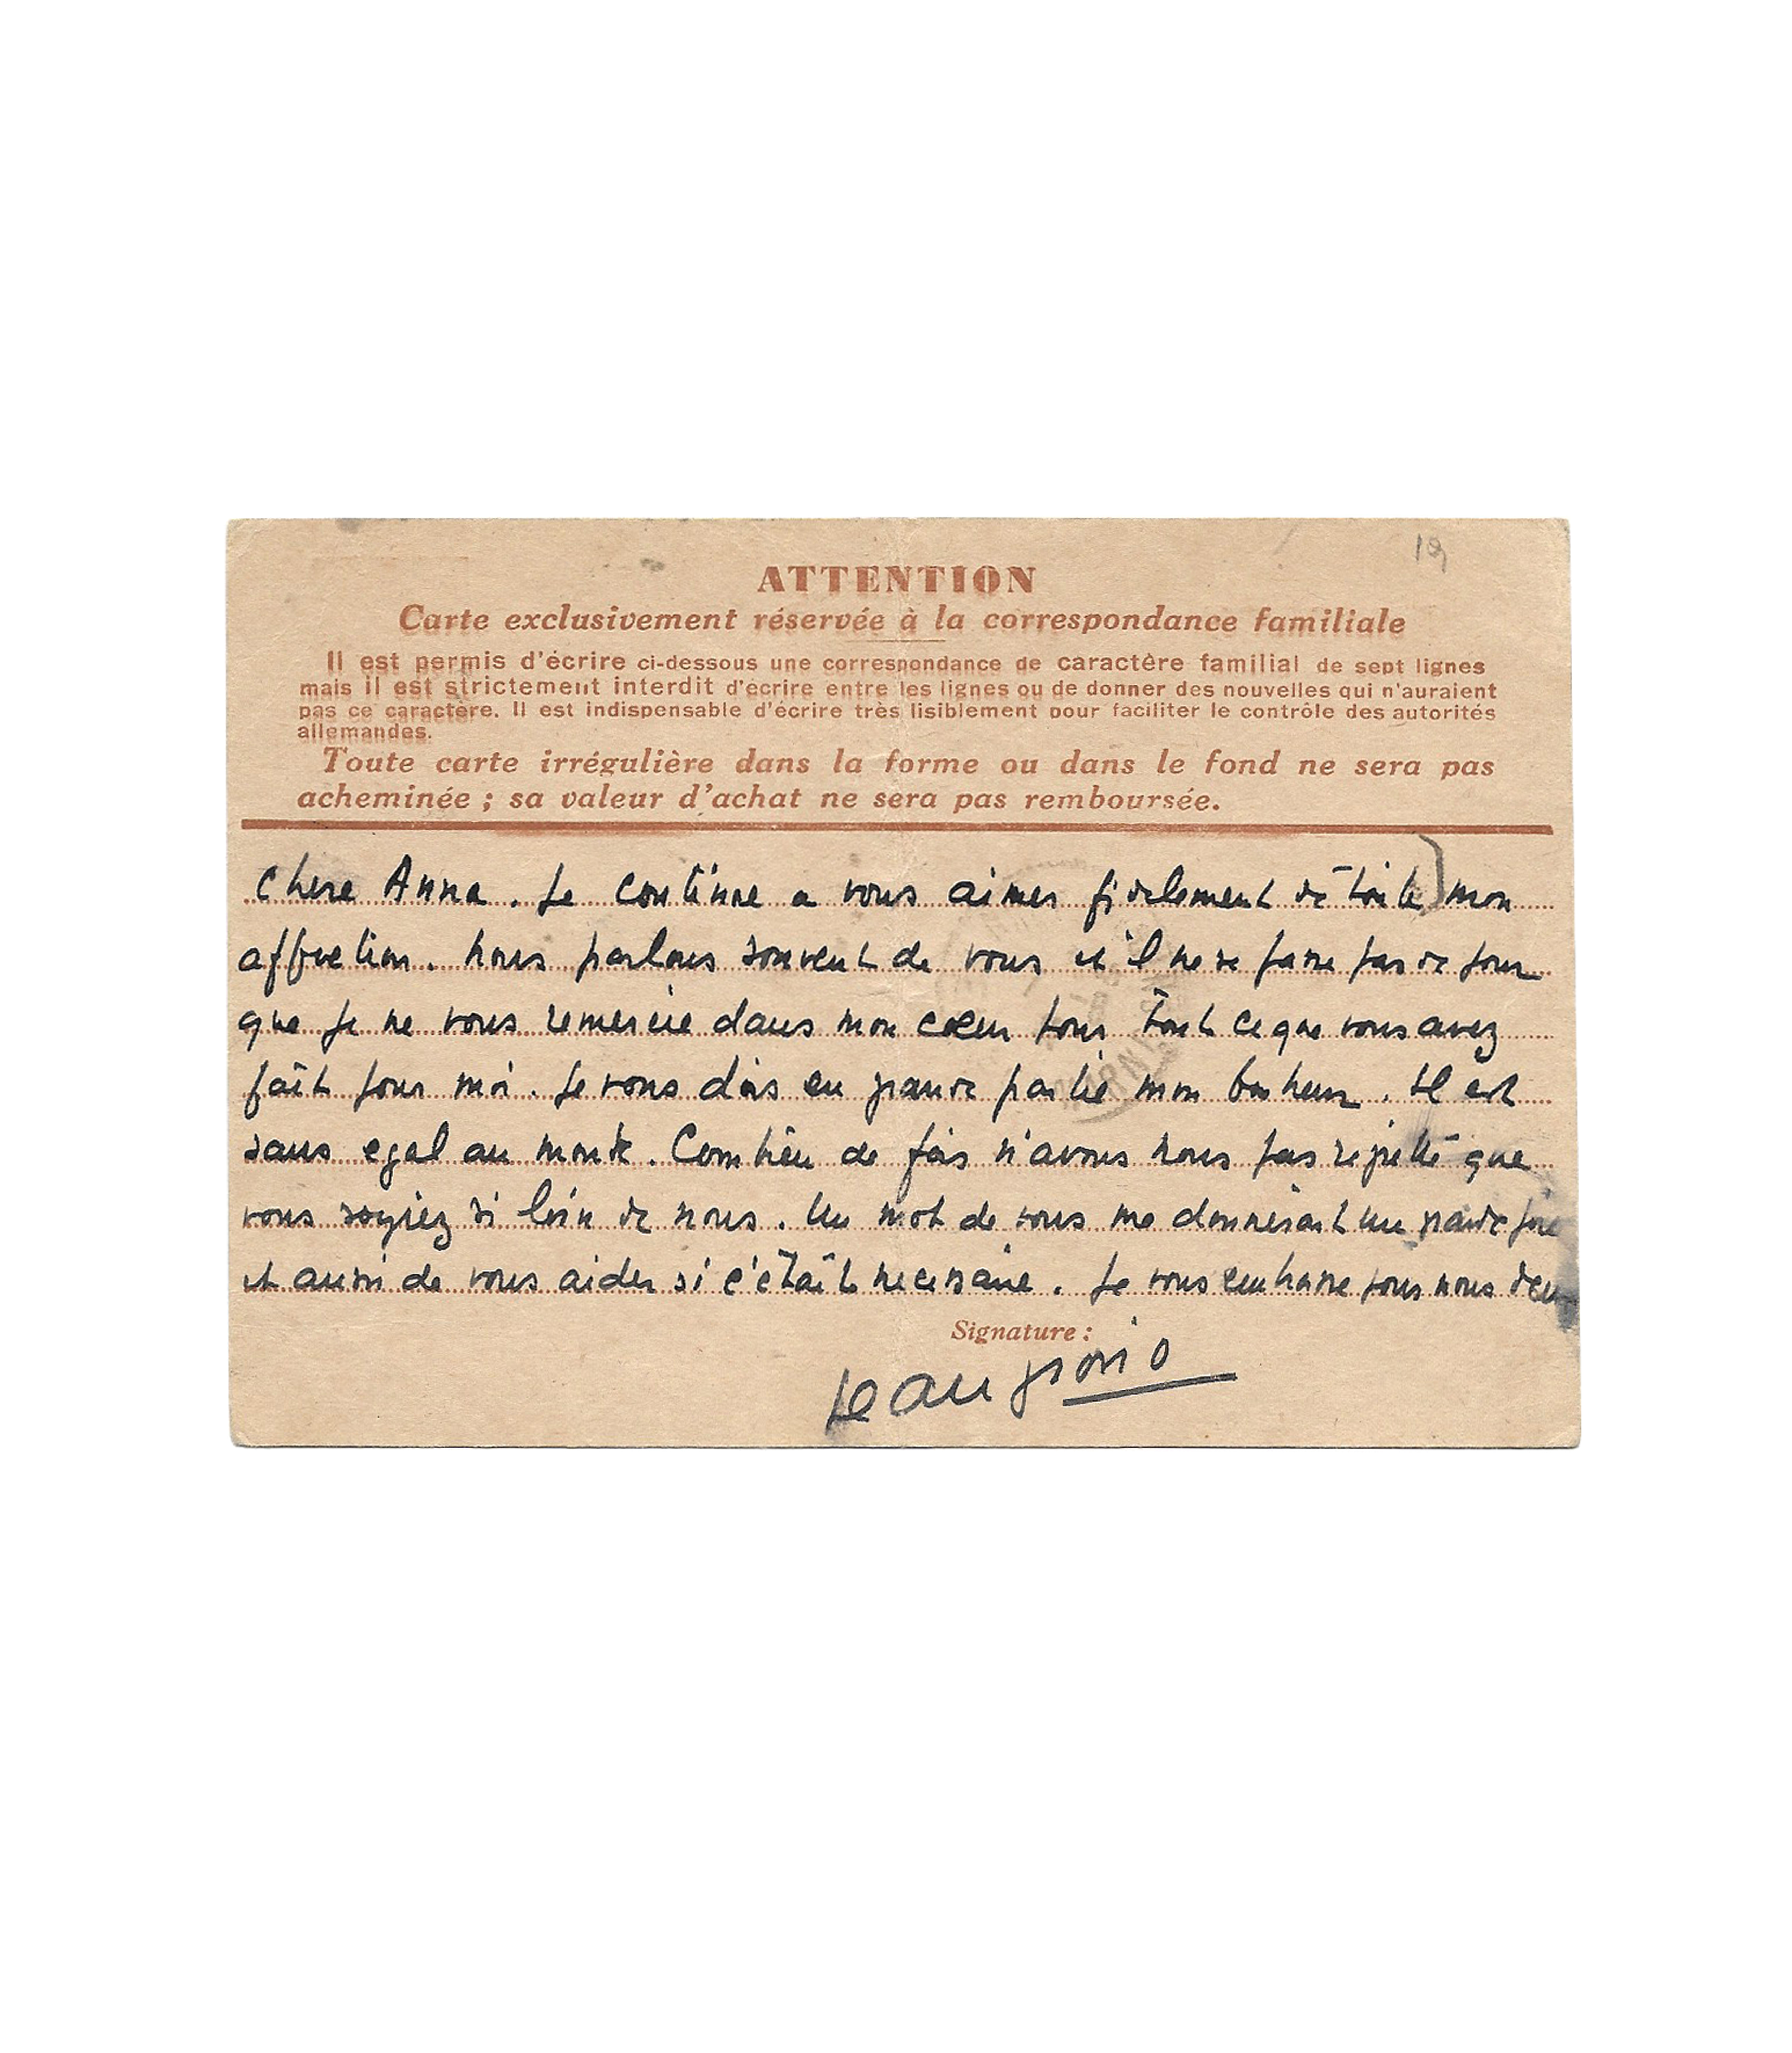 19
ATTENTION
Carte exclusivement réservée à la correspondance familiale
Il est permis d'écrire ci-dessous une correspondance de caractère familial de sept lignes
mais il est strictement interdit d'écrire entre les lignes ou de donner des nouvelles qui n'auraient
pas ce caractère. Il est indispensable d'écrire très lisiblement pour faciliter le contrôle des autorités
allemandes.
Toute carte irrégulière dans la forme ou dans le fond ne sera pas
acheminée ; sa valeur d'achat ne sera pas remboursée.
Chere Anna. Je continue a vous aimer fidelement de toute mon
affection. Nous parlons souvent de vous et il ne se passe pas de jour
que je ne vous remercie dans mon cœur pour tout ce que vous avez
fait pour moi. Je vous dois en grande partie mon bonheur. Il est
sans egal au monde. Combien de fois n'avons nous pas regretté que
vous soyiez si loin de nous. Un mot de vous me donnerait une grande joie
et aussi de vous aider si c'était necessaire. Je vous embrasse pour nous deux
Signature :
Jean giono